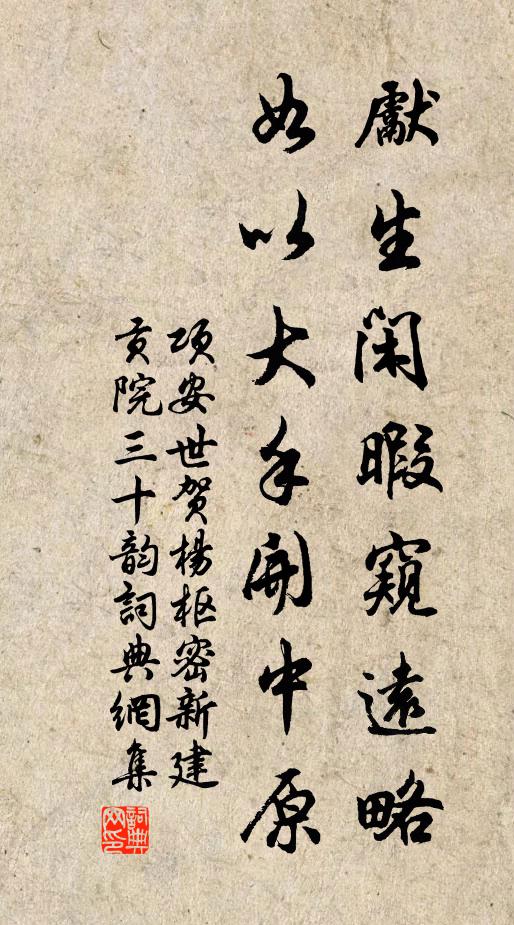 獻生閑暇窺遠略
如以大手開中原
項安世賀楊枢密新建
貢院三十韵詞典網集
詞典网印